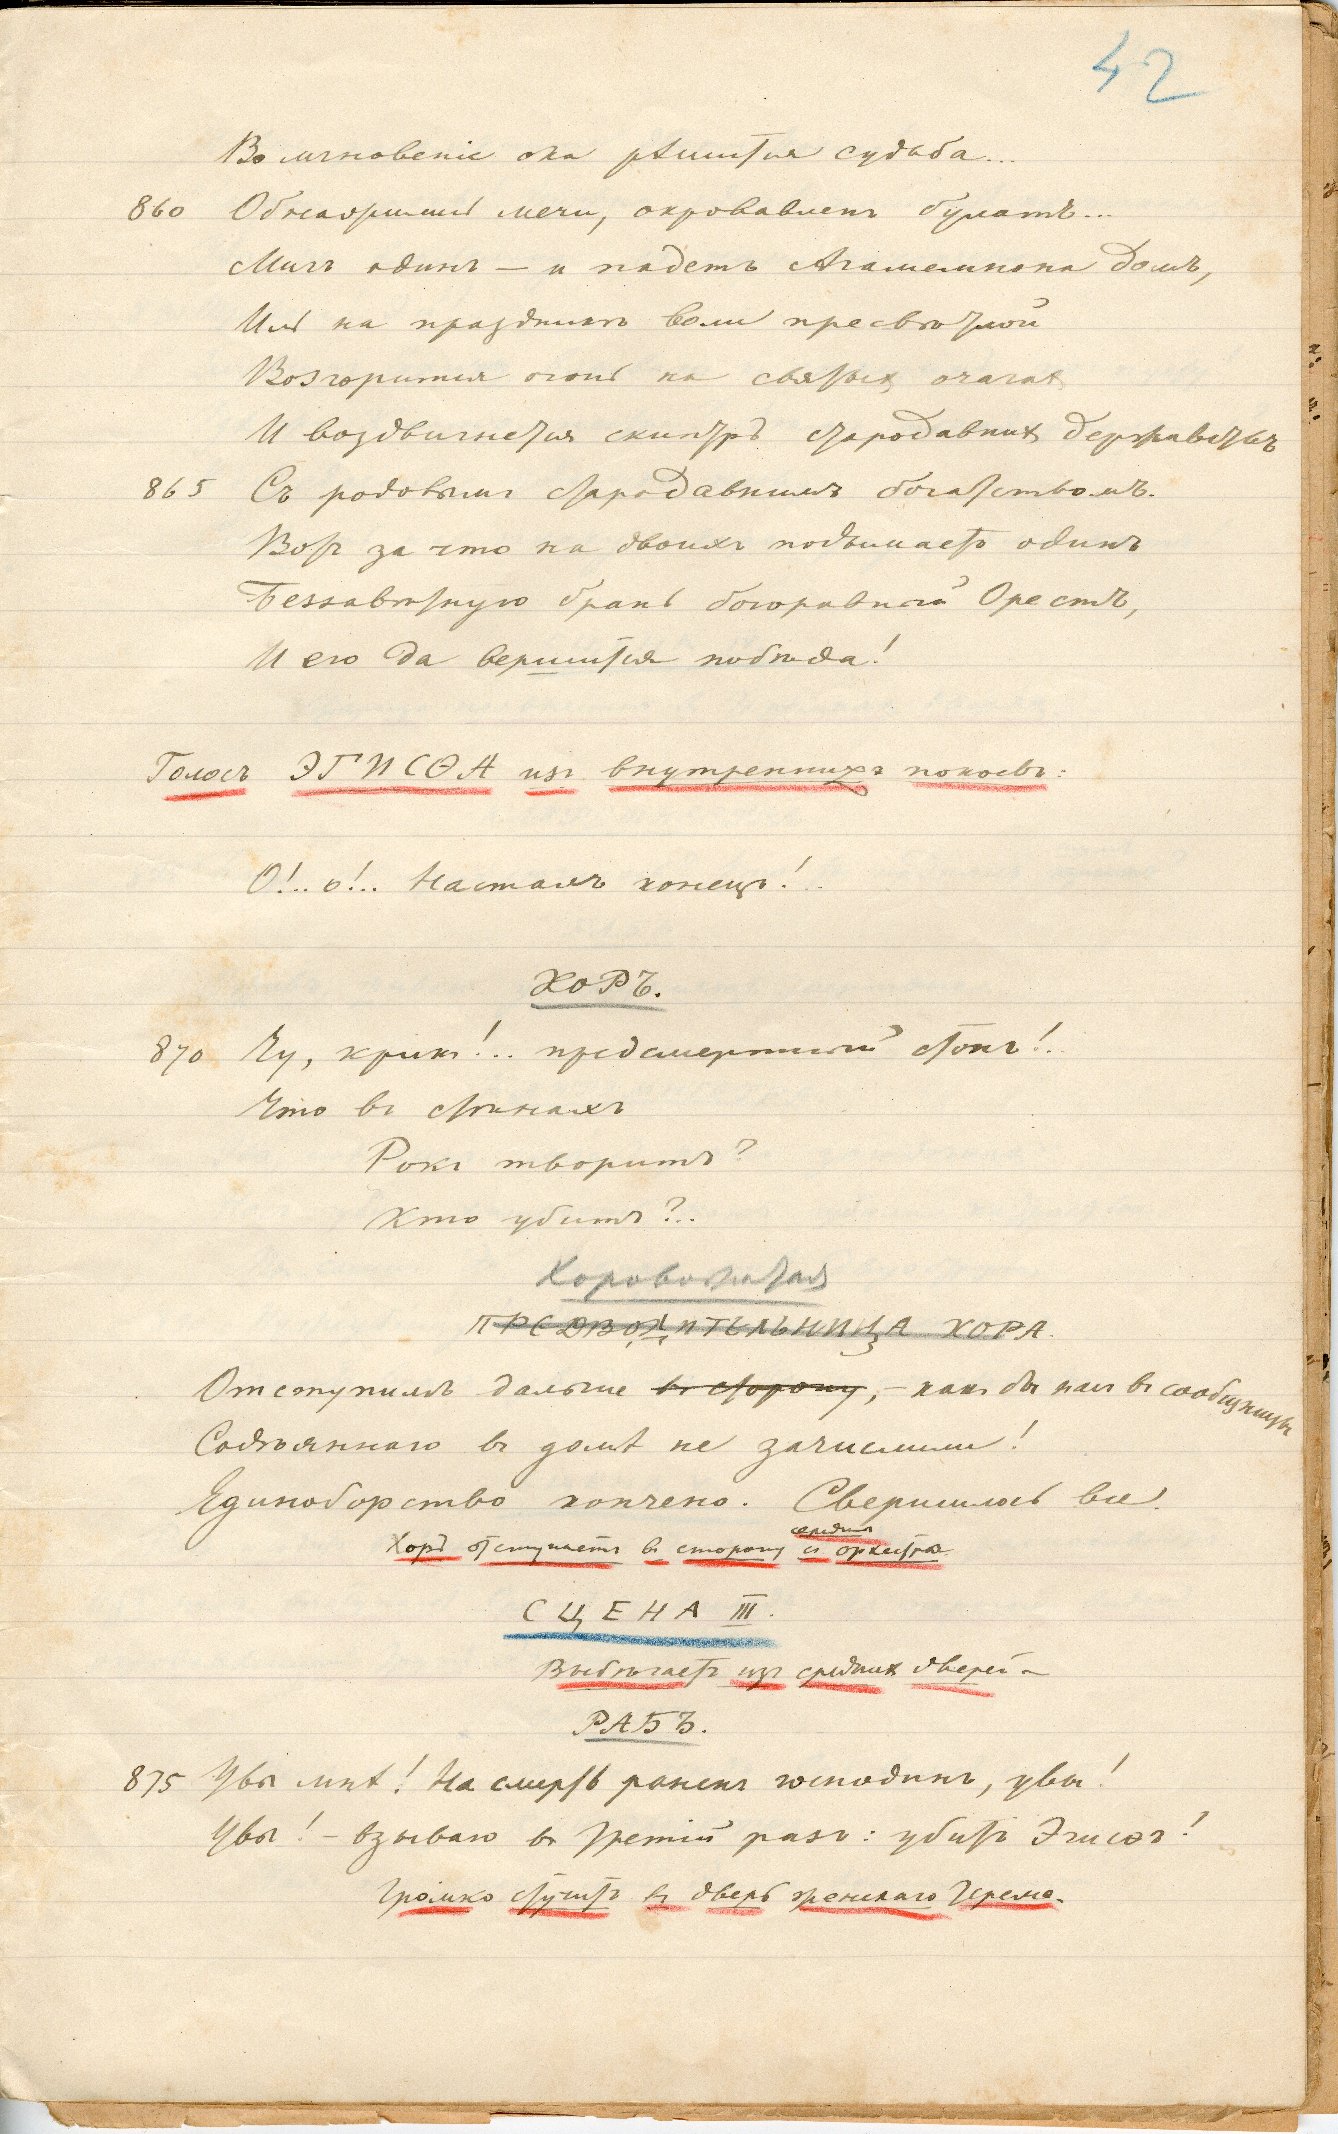 42
Во мгновеніе ока рѣшится судьба...
860 Обнажились мечи, окровавленъ булатъ...
Мигъ одинъ — и падетъ Агамемнона домъ,
Иль на праздникъ воли пресвѣтлой
Возгорится огонь на святыхъ очагахъ
И воздвигнется скиптръ стародавнихъ державствъ
865 Съ родовымъ стародавнимъ богатствомъ.
Вотъ за что на двоихъ подымаетъ одинъ
Беззавѣтную брань богоравный Орестъ,
И его да вершится побѣда!
Голосъ ЭГИСѲА изъ внутреннихъ покоевъ:
О!.. о!.. Насталъ конецъ!..
ХОРЪ.
870 Чу, крикъ!... предсмертный стонъ!..
Что въ стѣнахъ
Рокъ творитъ?
Кто убитъ?..
Хоровожатая
ПРЕДВОДИТЕЛЬНИЦА ХОРА.
Отступимъ дальше въ сторону, — какъ бы насъ въ сообщницы
Содѣяннаго въ домѣ не зачислили!
Единоборство кончено. Свершилось все.
середины
Хоръ отступаетъ въ сторону съ оркестры.
СЦЕНА III.
Выбѣгаетъ изъ среднихъ дверей —
РАБЪ.
875 Увы мнѣ! На смерть раненъ господинъ, увы!
Увы! — взываю въ третій разъ: убитъ Эгисѳъ!
Громко стучитъ въ дверь женскаго терема.